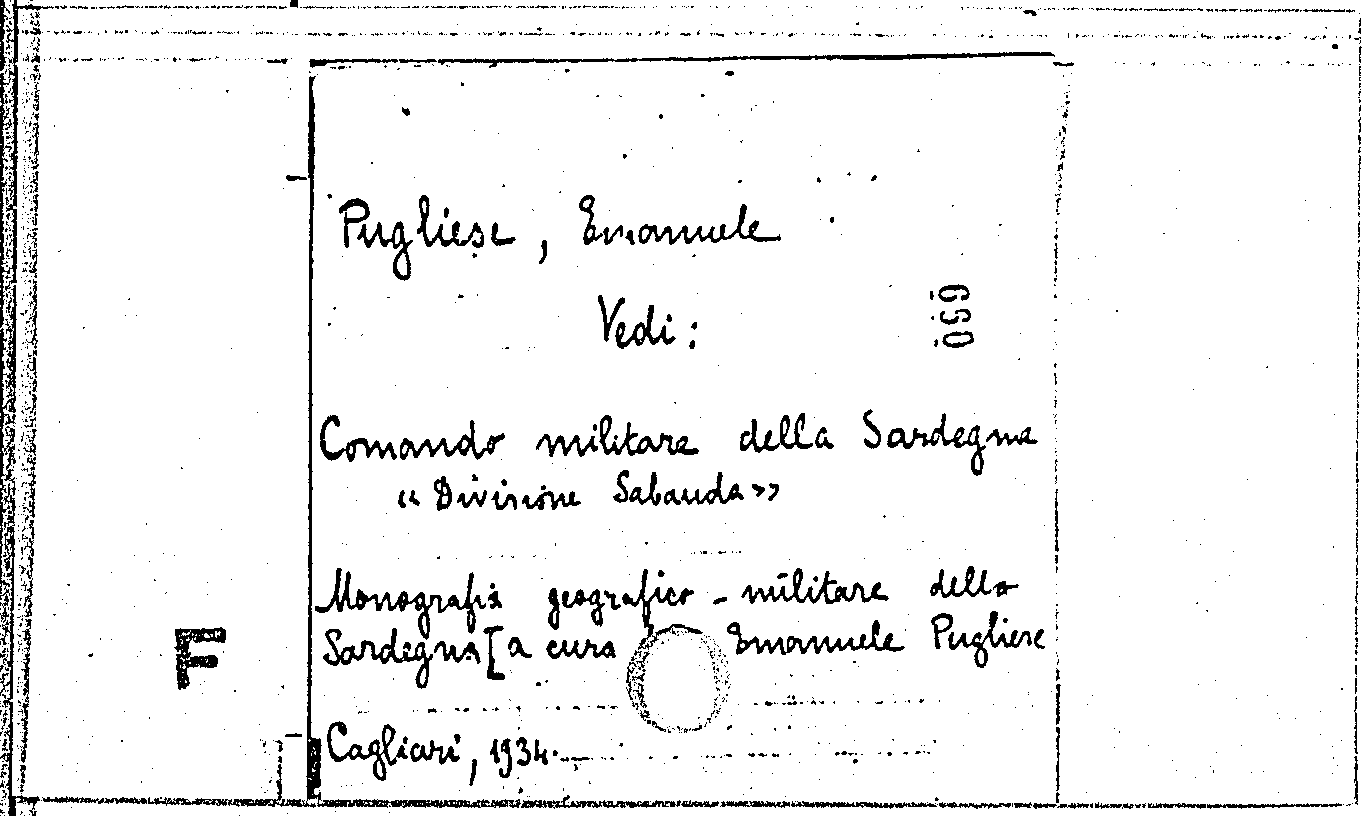 Pugliese, Emanuele
Vedi:
650
Comando militare della Sardegna
«Divisione Sabauda»
Monografia geografico-militare della
Sardegna [a cura Emanuele Pugliese
F
Cagliari, 1934.